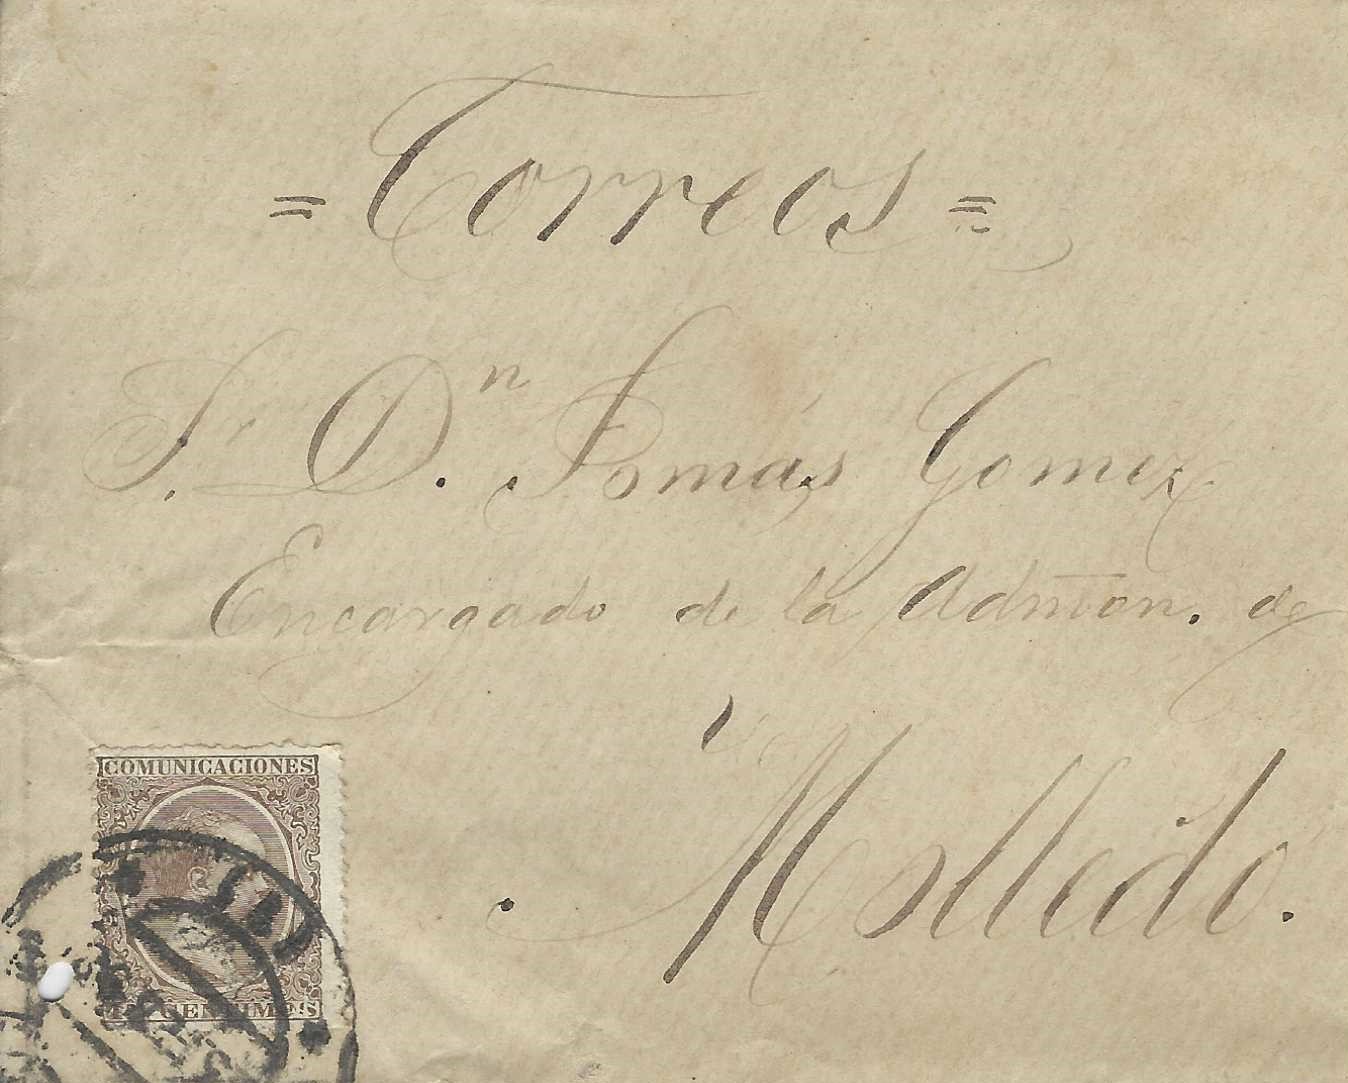 = Correos =
Sr. Dn. Tomás Gomez
Encargado de la Admon. de
Molledo.
COMUNICACIONES
CENTIMOS